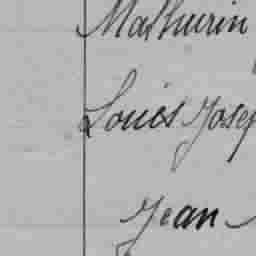 Mathurin
Louis Josep
Jean